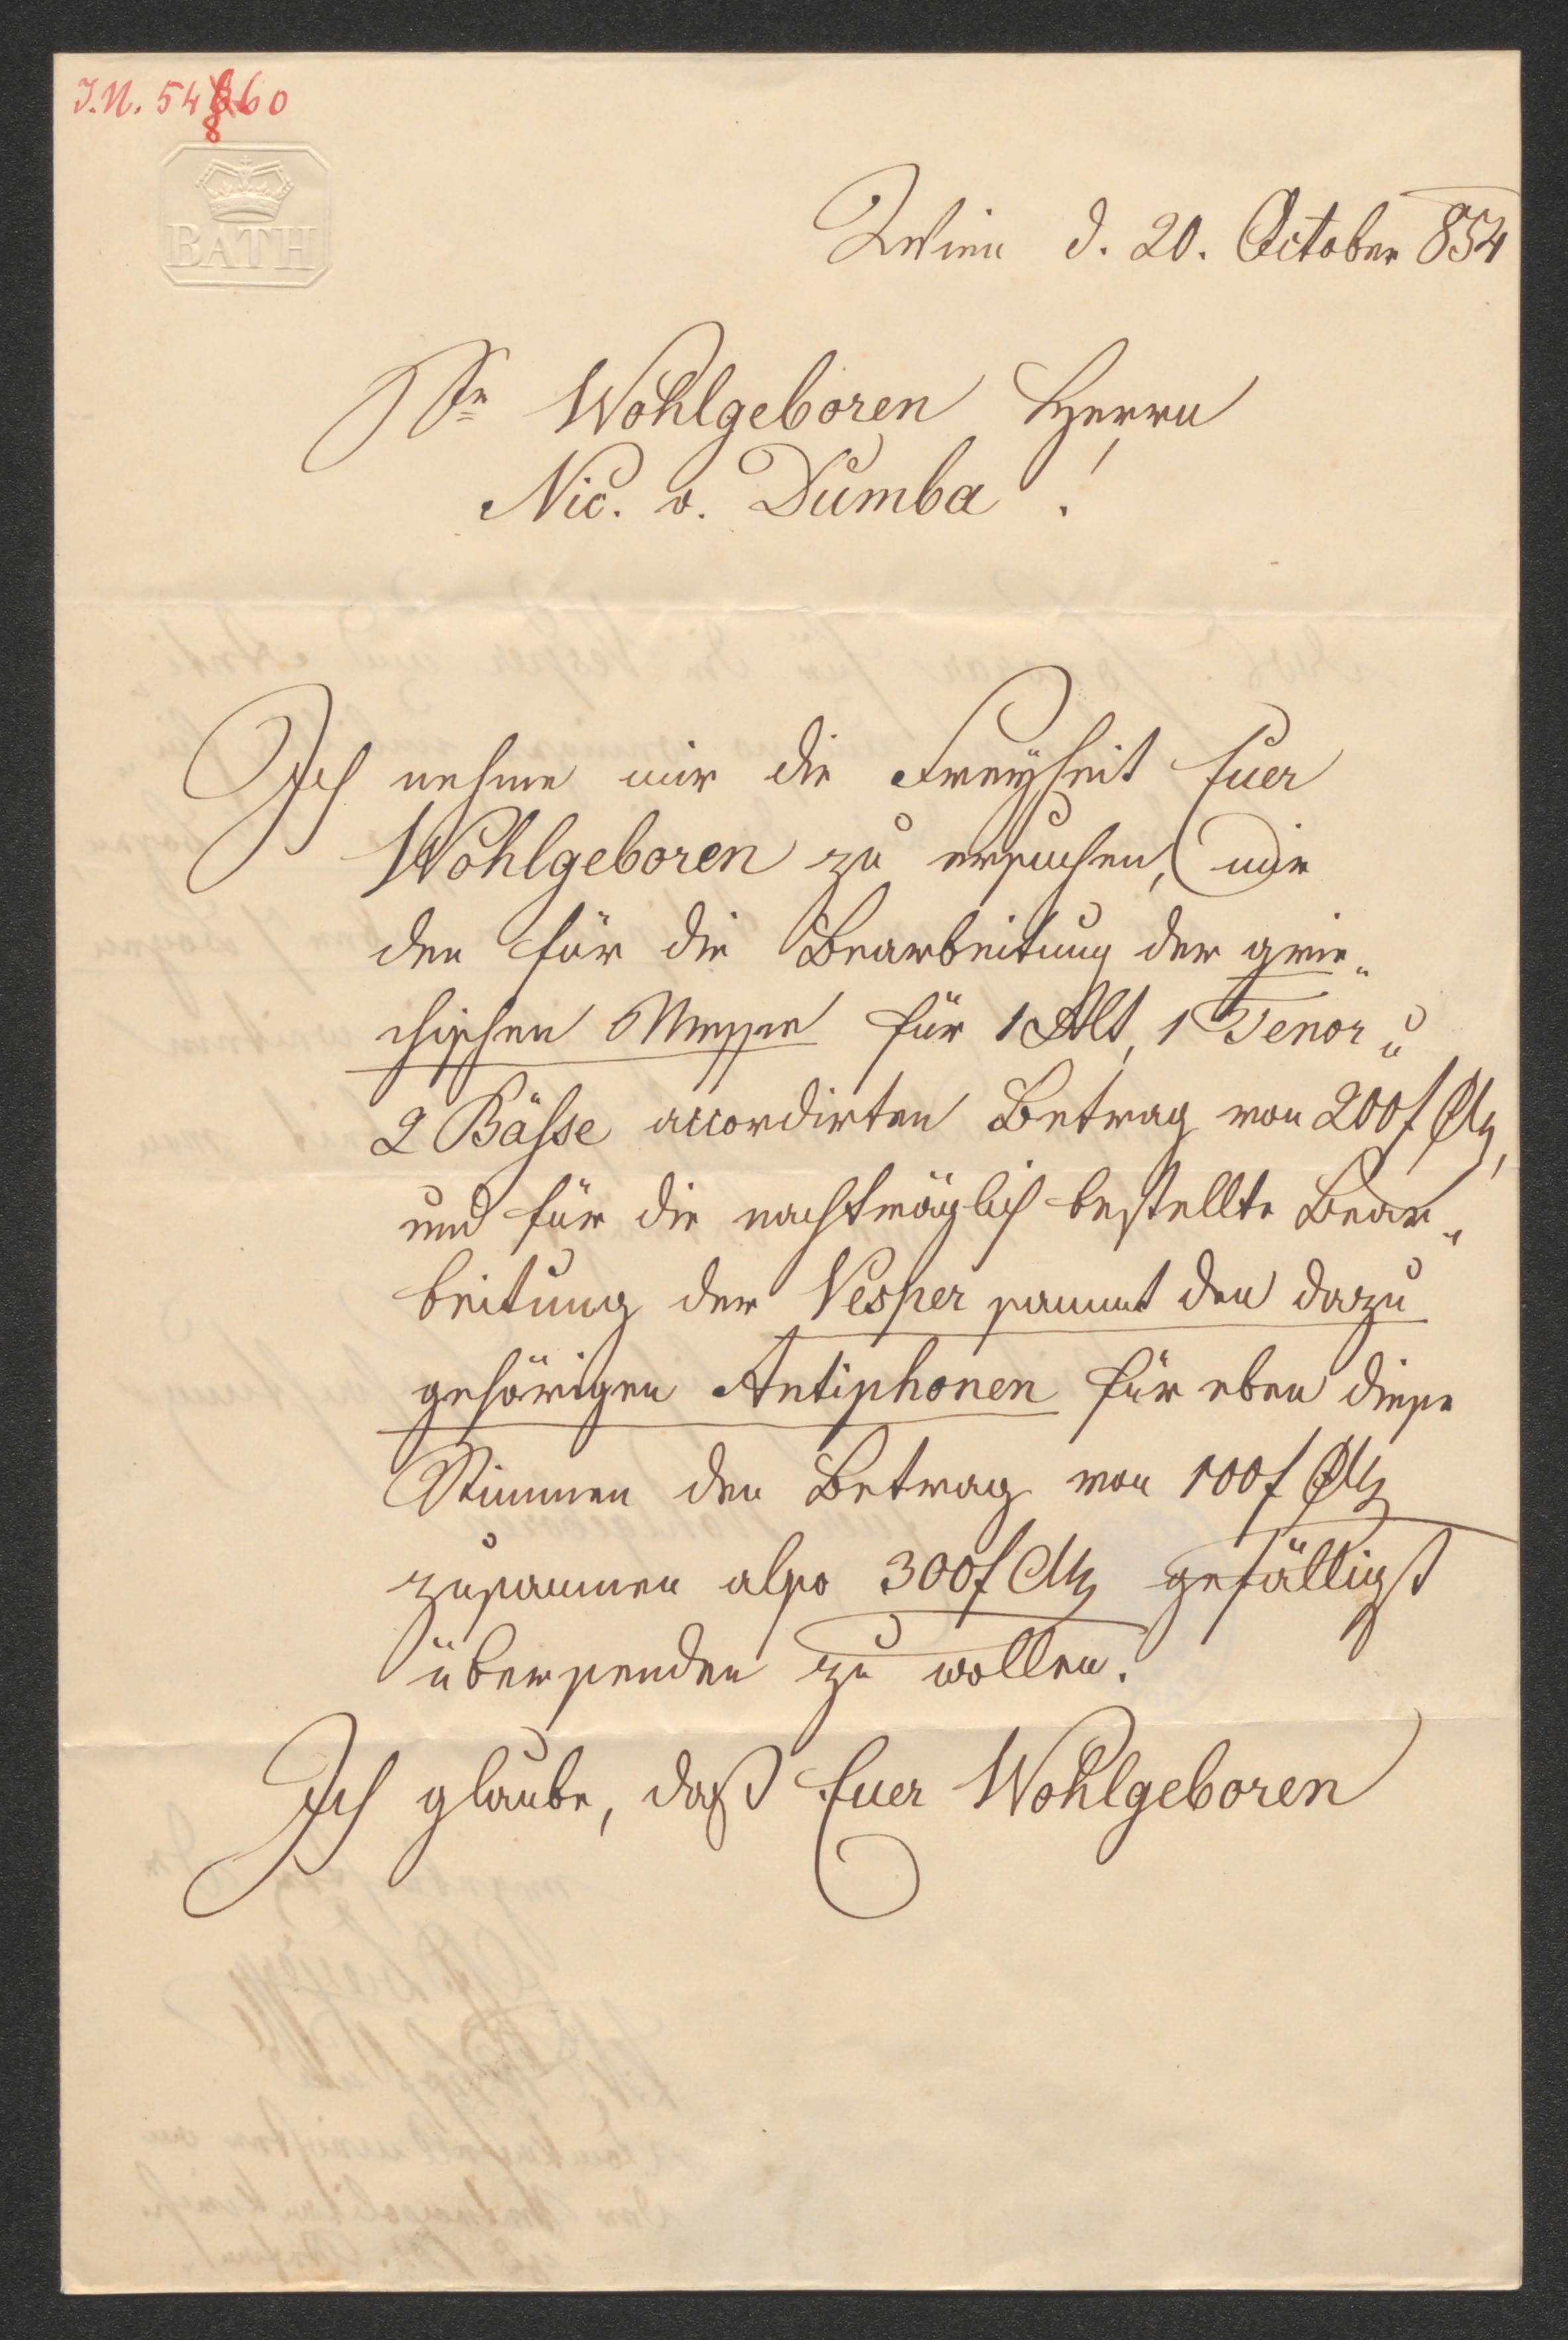 I.N. 54860
BATH
Wien d. 20. October 854
Sr Wohlgeboren Herrn
Nic. v. Dumba!
Ich nehme mir die Freyheit Euer
Wohlgeboren zu ersuchen, mir
den für die Bearbeitung der grie„
chischen Messe für 1 Alt, 1 Tenor u
2 Bässe accordirten Betrag von 200f CMz,
und für die nachträglich bestellte Bear„
beitung der Vesper sammt den dazu
gehörigen Antiphonen für eben diese
Stimmen den Betrag von 100f CMz
zusammen also 300f CMz gefälligst
übersenden zu wollen.
Ich glaube, daß Euer Wohlgeboren